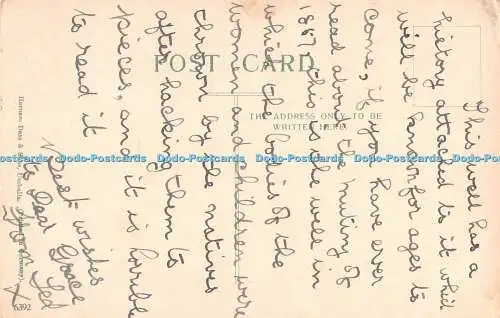 This well has a
history attached to it which
will be known for ages to
come, if you have ever
read about the mutiny of
1857 this is the well in
which the bodies of the
women and children were
thrown by the natives
after hacking them to
pieces, and it is horrible
to read it
Best wishes
to Dear Grace
from Ted
X
POST CARD
THE ADDRESS ONLY TO BE
WRITTEN HERE.
Dodo-Postcards Dodo-Postcards Dodo-Postcards Dodo-Postcards Dodo-Postcards Dodo-Postcards
6392